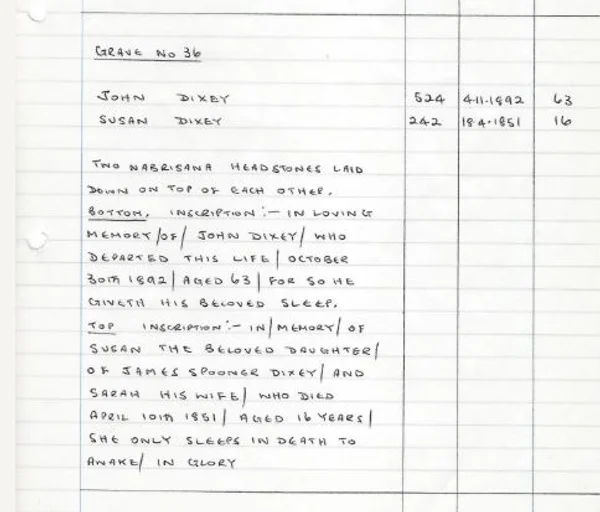 GRAVE NO 36
JOHN DIXEY 524 4-11-1892 63
SUSAN DIXEY 242 18-4-1851 16
TWO NABRISANA HEADSTONES LAID
DOWN ON TOP OF EACH OTHER.
BOTTOM. INSCRIPTION :- IN LOVING
MEMORY/OF/ JOHN DIXEY/ WHO
DEPARTED THIS LIFE/ OCTOBER
30TH 1892/ AGED 63/ FOR SO HE
GIVETH HIS BELOVED SLEEP.
TOP INSCRIPTION :- IN/MEMORY/ OF
SUSAN THE BELOVED DAUGHTER/
OF JAMES SPOONER DIXEY/ AND
SARAH HIS WIFE/ WHO DIED
APRIL 10TH 1851/ AGED 16 YEARS/
SHE ONLY SLEEPS IN DEATH TO
AWAKE/ IN GLORY